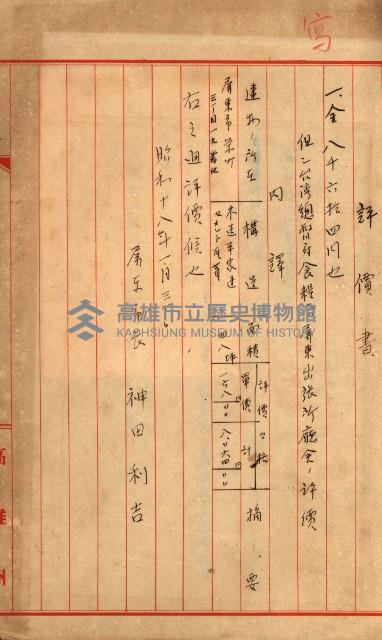 寫
評價書
一、金八千六拾四円也
但シ台湾總督府食糧局屏東出張所廳舍ノ評價
內譯
建物ノ所在 構造 面積 評價々格 摘要
單價 計
屏東市榮町三丁目一九番地 木造平家建 四八坪 一六八00 八.0六四00
右之通評價候也
昭和十八年一月三0日
屏東市長 神田利吉
高雄州
高雄市立歷史博物館
KAOHSIUNG MUSEUM OF HISTORY